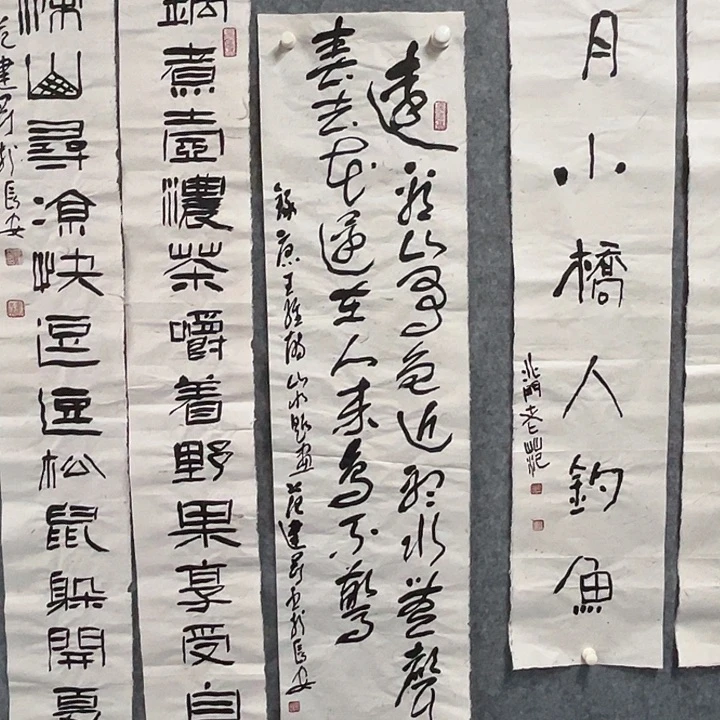 月小橋人釣魚
北門老范
遠觀山有色近聽水無聲
春去花還在人來鳥不驚
錄唐王維詩山水題畫范建昇書於長安
鍋煮壺濃茶嚼着野果享受自
深山尋涼快逗逗松鼠躲開夏
范建昇於長安